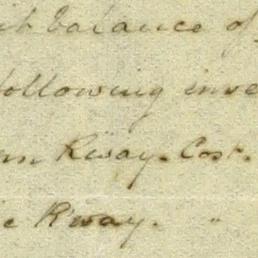 balance of
following
Rway. Cost.
Rway. "